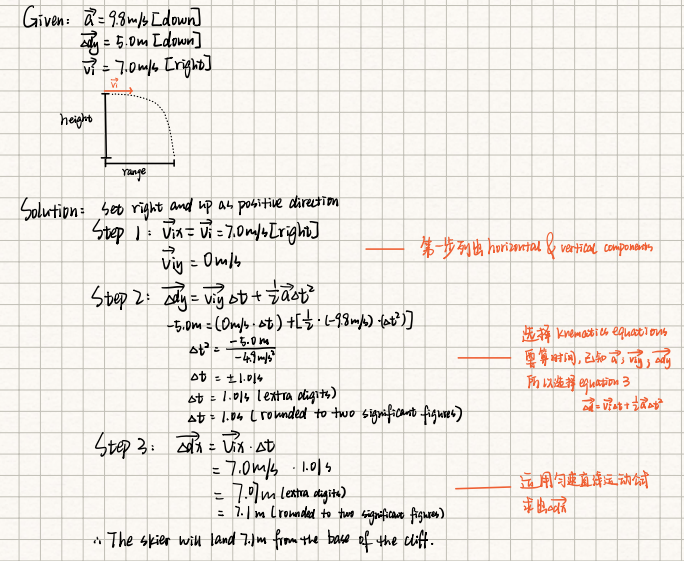 Given: a⃗ = 9.8m/s [down]
Δd⃗y = 5.0m [down]
v⃗i = 7.0m/s [right]
v⃗i
height
range
Solution: Set right and up as positive direction
Step 1: v⃗ix = v⃗i = 7.0m/s [right]
v⃗iy = 0m/s
第一步列出 horizontal & vertical components
Step 2: Δd⃗y = v⃗iy Δt + ½a⃗Δt²
-5.0m = (0m/s · Δt) + [½ · (-9.8m/s) · (Δt²)]
Δt² = -5.0m / -4.9m/s²
Δt = ±1.01s
Δt = 1.01s (extra digits)
Δt = 1.0s (rounded to two significant figures)
选择 knematics equations
要算时间，已知 a⃗, v⃗iy, Δd⃗y
所以选择 equation 3
Δd⃗ = v⃗iΔt + ½a⃗Δt²
Step 3: Δd⃗x = v⃗ix · Δt
= 7.0m/s · 1.01s
= 7.07m (extra digits)
= 7.1m (rounded to two significant figures)
运用匀速直线运动公式
求出Δd⃗x
∴ The skier will land 7.1m from the base of the cliff.